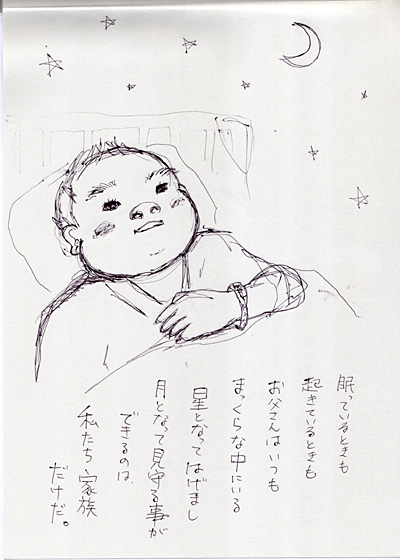 眠っているときも
起きているときも
お父さんはいつも
まっくらな中にいる
星となってはげまし
月となって見守る事が
できるのは
私たち家族
だけだ。